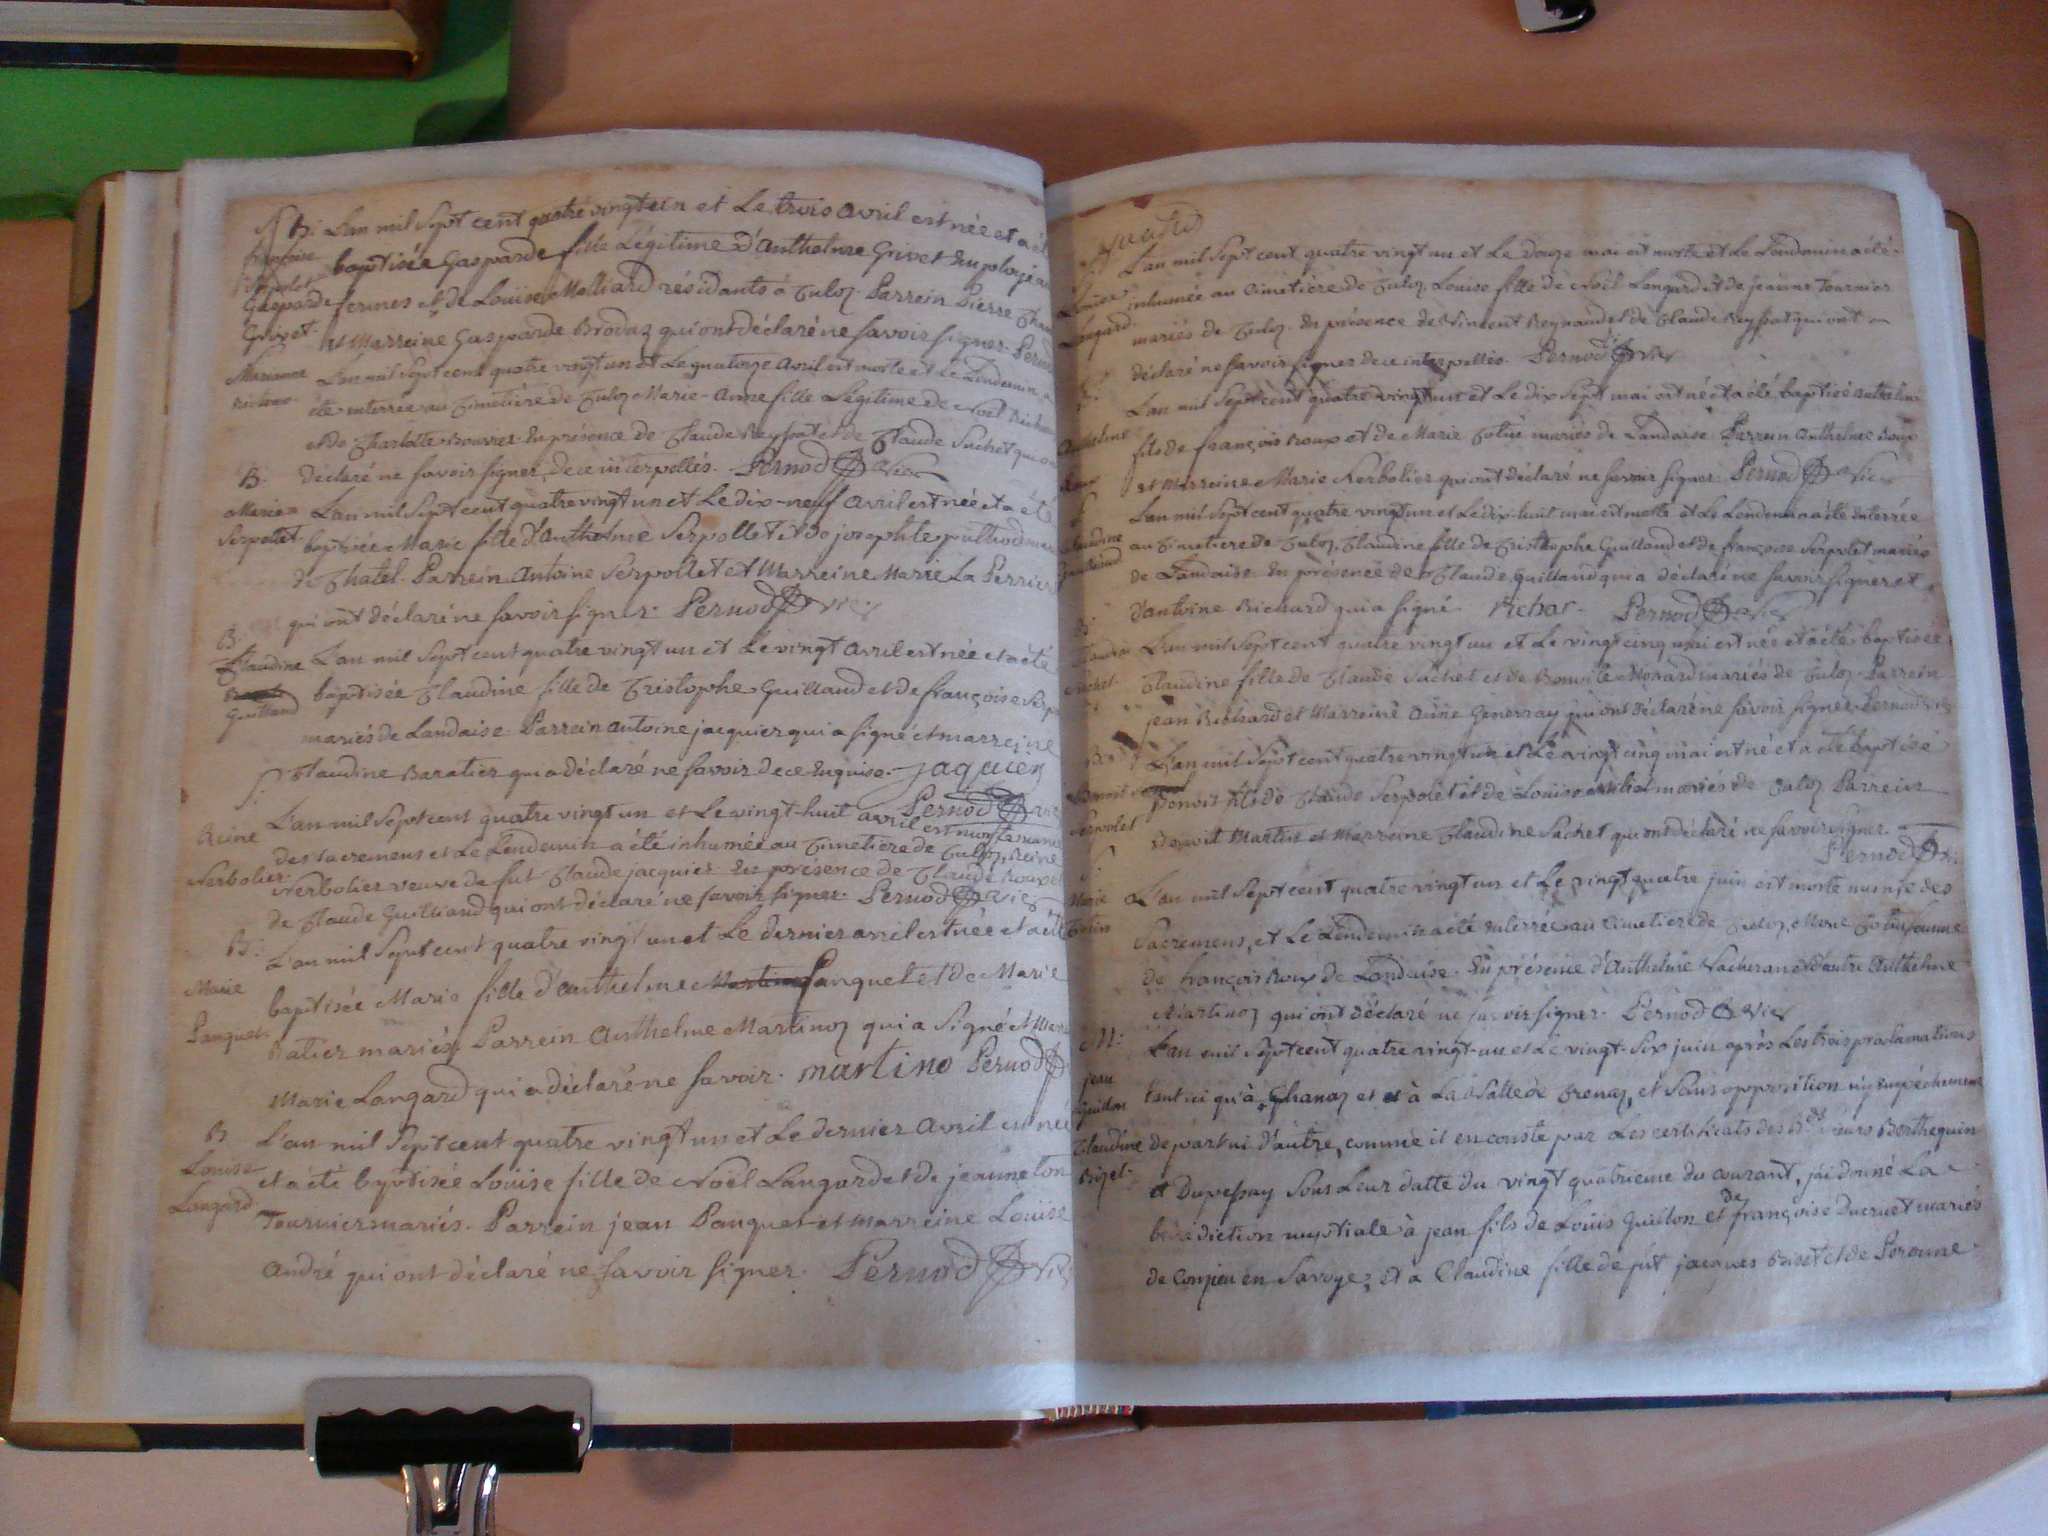 B. L'an mil Sept cent quatre vingt un et Le trois avril est née et a été
baptisée Gasparde fille Légitime d'Anthelme Grivet Employé aux
Gasparde
Grivet
fermes et de Louise Molliard résidants à Culoz. Parrein Pierre
et Marreine Gasparde Brodaz qui ont déclaré ne savoir signer. Pernod
Marianne
Richard
L'an mil Sept cent quatre vingt un et Le quatorze avril est morte et Le Lendemain a
été enterrée au Cimetière de Culoz Marie-Anne fille Légitime de Noël Richard
et de Charlotte Bouvier. En présence de Claude Reypat et de Claude Suchet qui ont
déclaré ne savoir signer, de ce interpellés. Pernod Vic
B.
Marie
Serpollet
L'an mil Sept cent quatre vingt un et Le dix-neuf avril est née et a été
baptisée Marie fille d'Anthelme Serpollet et de josephte pulthod mariés
de Chatel. Parrein Antoine Serpollet et Marreine Marie La Perriere
qui ont déclaré ne savoir signer. Pernod Vic
B.
Claudine
Guilland
L'an mil Sept cent quatre vingt un et Le vingt avril est née et a été
baptisée Claudine fille de Cristophe Guilland et de françoise Serpo
mariés de Landaise. Parrein antoine jacquier qui a signé et marreine
Claudine Baratier qui a déclaré ne savoir de ce Enquise. jaquier
S.
Pernod vic
Reine
Nerbolier
L'an mil Sept cent quatre vingt un et Le vingt-huit avril est morte munie
des sacremens et Le Lendemain a été inhumée au Cimetiere de Culoz, Reine
Nerbolier veuve de fut Claude jacquier. En présence de Claude Roux et
de Claude Guilland qui ont déclaré ne savoir signer. Pernod Vic
B.
Marie
Panquet
L'an mil Sept cent quatre vingt un et Le dernier avril est née et a été
baptisée Marie fille d'Anthelme Martinoz Panquet et de Marie
Ratier mariés. Parrein Anthelme Martinoz qui a Signé et Marr
Marie Langard qui a déclaré ne savoir. martino Pernod
B
Louise
Langard
L'an mil Sept cent quatre vingt un et Le dernier Avril est née
et a été baptisée Louise fille de Noël Langard et de jeanneton
Tournier mariés. Parrein jean Panquet et marreine Louise
André qui ont déclaré ne savoir signer. Pernod Vic
S.
Louise
Langard
L'an mil Sept cent quatre vingt un et Le douze mai est morte et Le Lendemain a été
inhumée au Cimetière de Culoz Louise fille de Noël Langard et de jeanne Tournier
mariés de Culoz. En présence de Vincent Reynaud et de Claude Reypat qui ont
déclaré ne savoir signer de ce interpellés. Pernod Vic
B.
Anthelme
Roux
L'an mil Sept cent quatre vingt un et Le dix sept mai est né et a été baptisé Anthelme
fils de françois Roux et de Marie Cotin mariés de Landaise. Parrein Anthelme Roux
et Marreine Marie Nerbolier qui ont déclaré ne savoir signer. Pernod Vic
S.
Claudine
Guilland
L'an mil Sept cent quatre vingt un et Le dix huit mai est morte et Le Lendemain a été Enterrée
au Cimetiere de Culoz, Claudine fille de Cristophe Guilland et de françoise Serpolet mariés
de Landaise. En présence de Claude Guilland qui a déclaré ne savoir signer et
d'antoine Richard qui a signé. Richar. Pernod Vic
B.
Claudine
Suchet
L'an mil Sept cent quatre vingt un et Le vingt cinq mai est née et a été baptisée
Claudine fille de Claude Suchet et de Benoite Monard mariés de Culoz. Parrein
jean Richard et Marreine Anne Generray qui ont déclaré ne savoir signer. Pernod Vic
B.
Benoit
Serpolet
L'an mil Sept cent quatre vingt un et Le vingt cinq mai est né et a été baptisé
Benoit fils de Claude Serpolet et de Louise mariés de Culoz. Parrein
Benoit Martin et Marreine Claudine Suchet qui ont déclaré ne savoir signer.
Pernod Vic
S.
Marie
Cotin
L'an mil Sept cent quatre vingt un et Le vingt quatre juin est morte munie des
Sacremens, et Le Lendemain a été Enterrée au Cimetiere de Culoz, Marie Cotin femme
de françois Roux de Landaise. En présence d'Anthelme Vacheran et d'autre Anthelme
Martinoz qui ont déclaré ne savoir signer. Pernod Vic
M.
jean
Guillon
Claudine
Bizet
L'an mil Sept cent quatre vingt-un et Le vingt-Six juin après Les trois proclamations
tant ici qu'à Chanaz et à La Salle de Crenaz, et Sans opposition ny Empêchement
de part ni d'autre, comme il en conste par Les certificats des Rds Sieurs Berthequin
et Dupessay Sous Leur datte du vingt quatrieme du courant, j'ai donné La
bénédiction nuptiale à jean fils de Louis Guillon et de françoise Ducruet mariés
de Conjieu en Savoye, et à Claudine fille de fut jacques Bizet et de Peronne